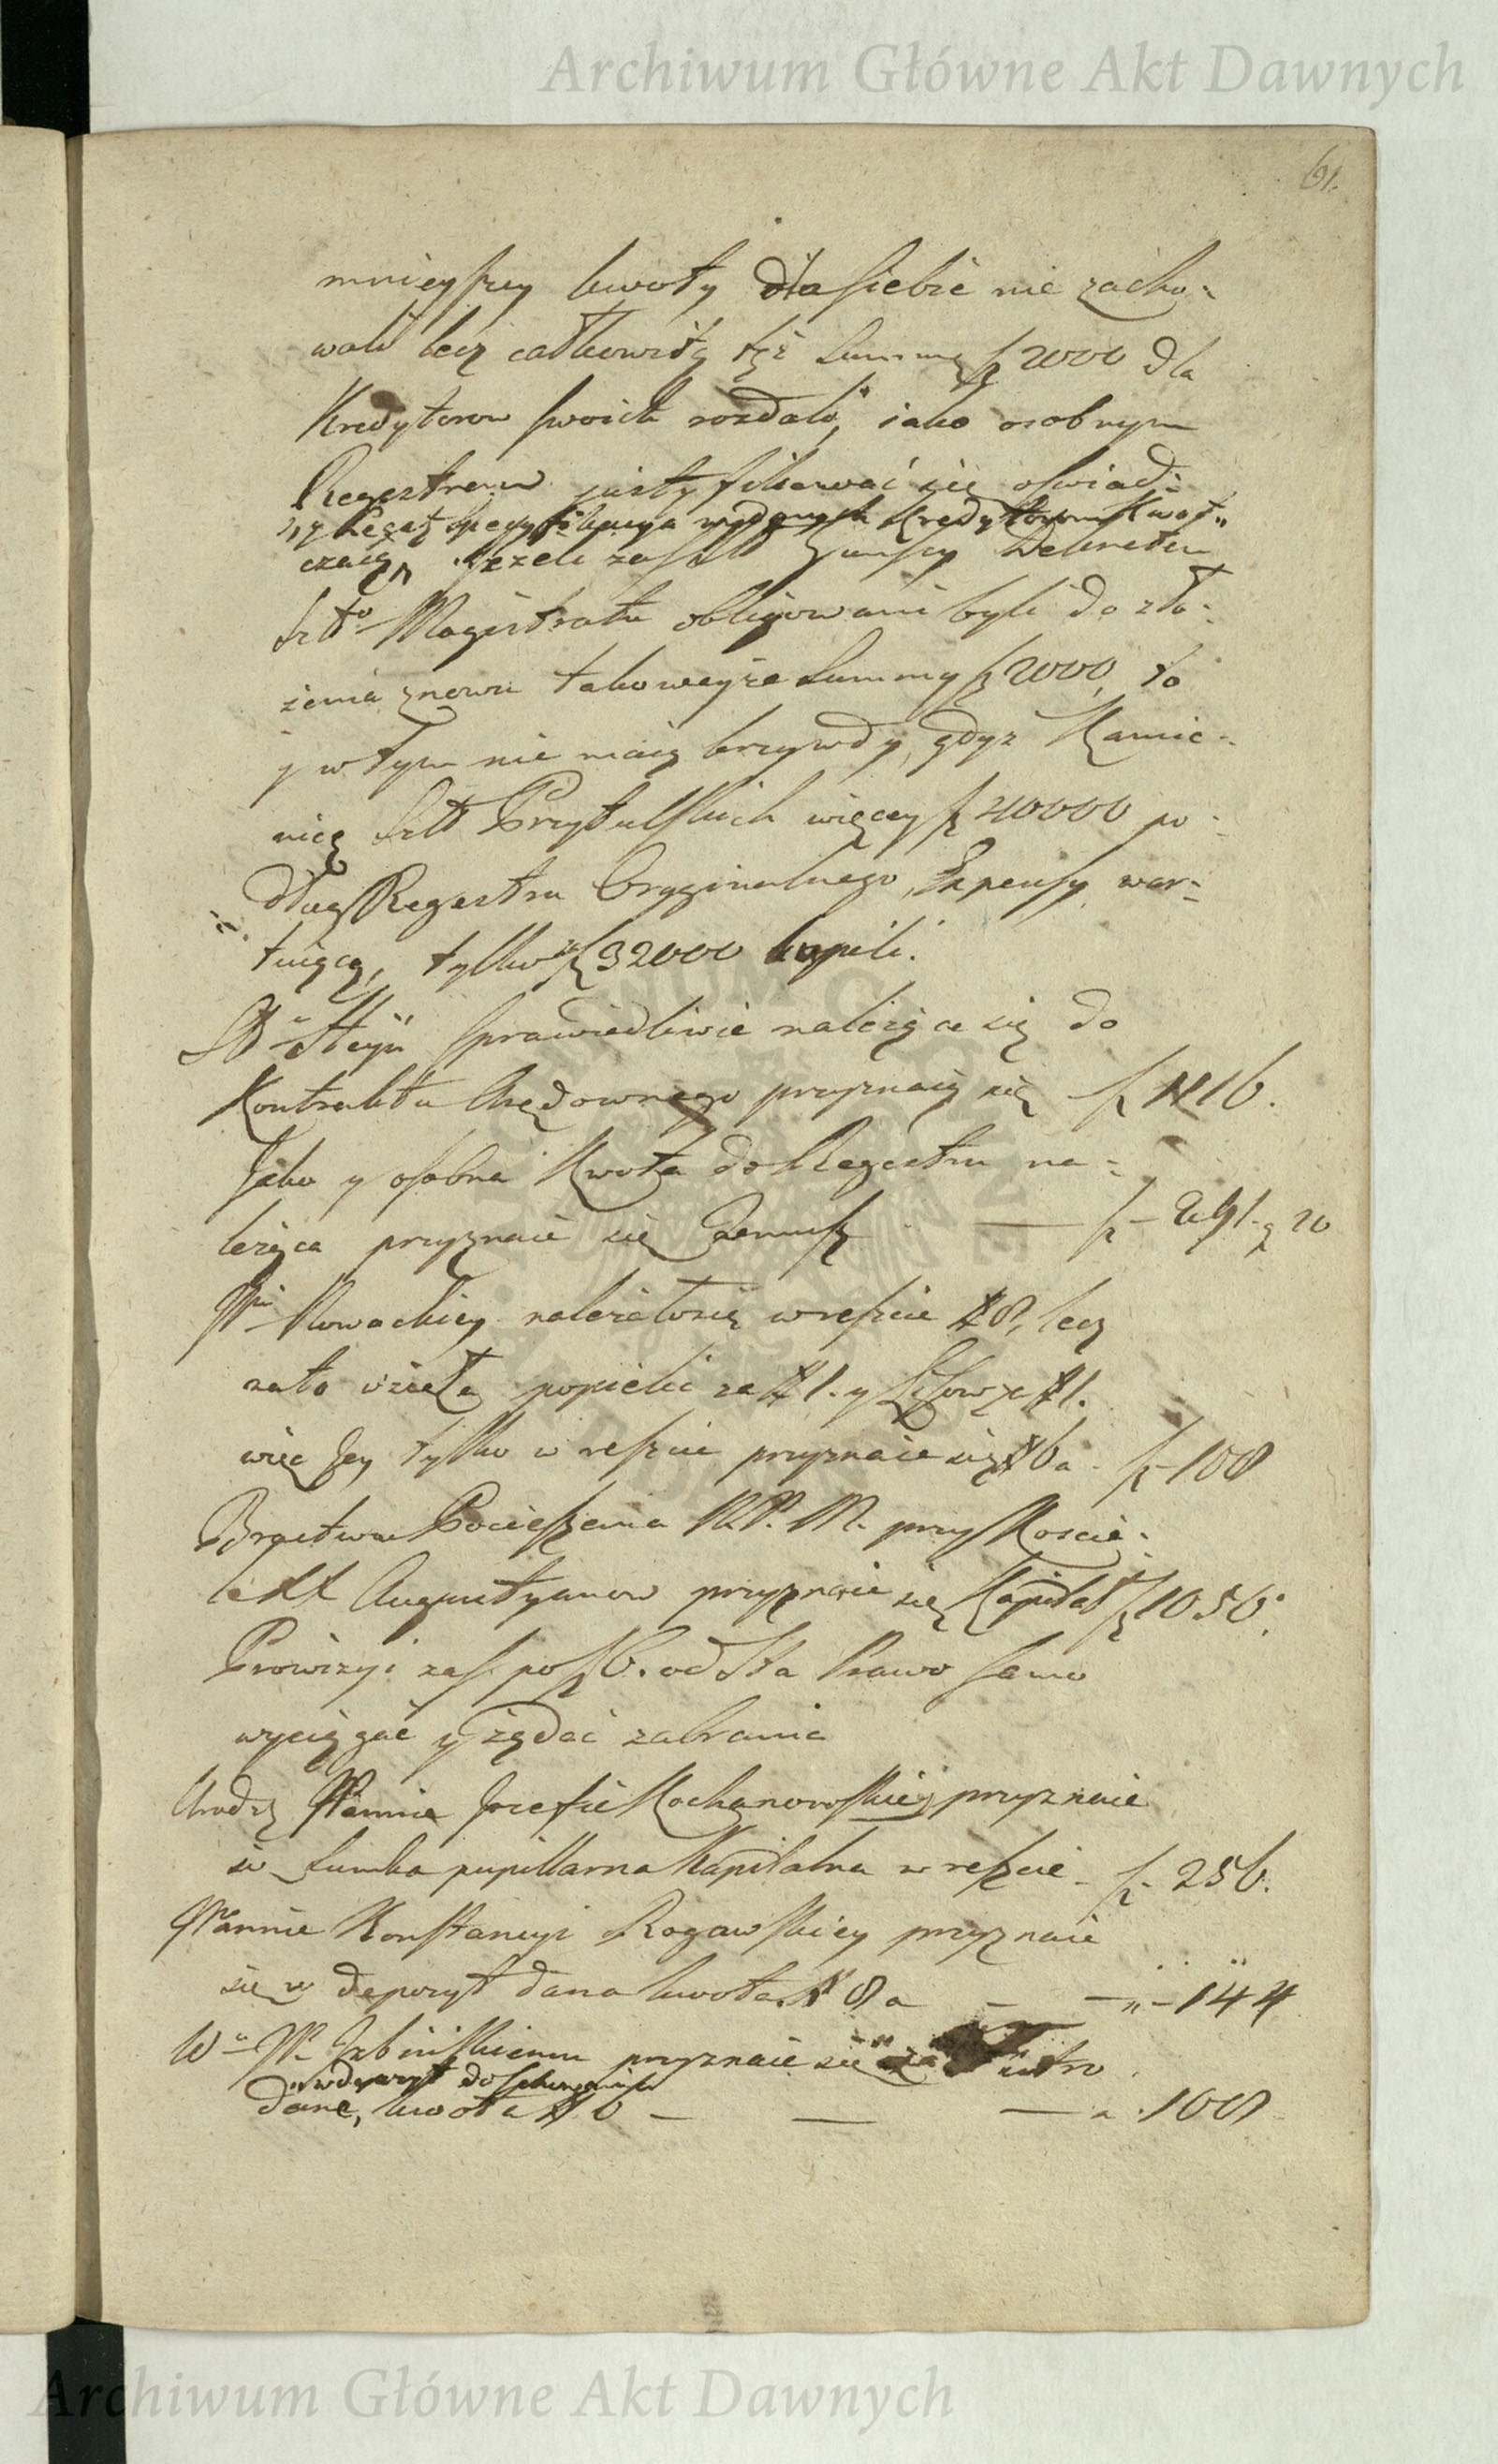 Archiwum Główne Akt Dawnych
61.
mnieyszey kwoty dla siebie nie zacho-
wali lecz całkowitą też Summę f 2000 dla
Kredytorow swoich rozdali, iako osobnym
Regestrem justyfikować się oswiad-
Specyfikacya wydanych Kredytorom Kwot
czaią, Jeżeli zaś Zmisey Dekretem
Szltto Magistratu obligowani byli do zło-
żenia znowu takoweyże Summy f 2000, to
y w tym nie maią krzywdy, gdyz Kamie-
nicę Szltt Przytulskich więcey f 40000 po-
dług Regestru Oryginalnego Expensy war-
tuiącą, tylko f 32000 kupili.
sprawiedliwie należące się do
Kontraktu Arędownego przyznaią się f 1116.
Jako y osobna Kwota do Regestru na-
leżąca przyznaie się Jemuż — f 20
Nowackiey należało się w reszcie # 8, lecz
na to wzieła popielic za # 1. y # 1.
więc Jey tylko w reszcie przyznaie się # 6 a f 108
Bractwu Pocieszenia N. P. M. przy Koscie-
le XX Augustyanow przyznaie się Kapitał f 1050.
Prowizyi zaś po f 6. od Sta Prawo samo
wyciągać y żądać zabrania
Urodz Pannie Jozefie Kochanowskiey przyznaie
się Sumka pupillarna Kapitalna w reszcie - f - 256.
Pannie Konstancyi Rogawskiey przyznaie
się w depozyt dana kwota # 8 a — 144
przyznaie się za futro
w depozyt do schowania
dane, kwota # 6 — — — a 108
Archiwum Główne Akt Dawnych